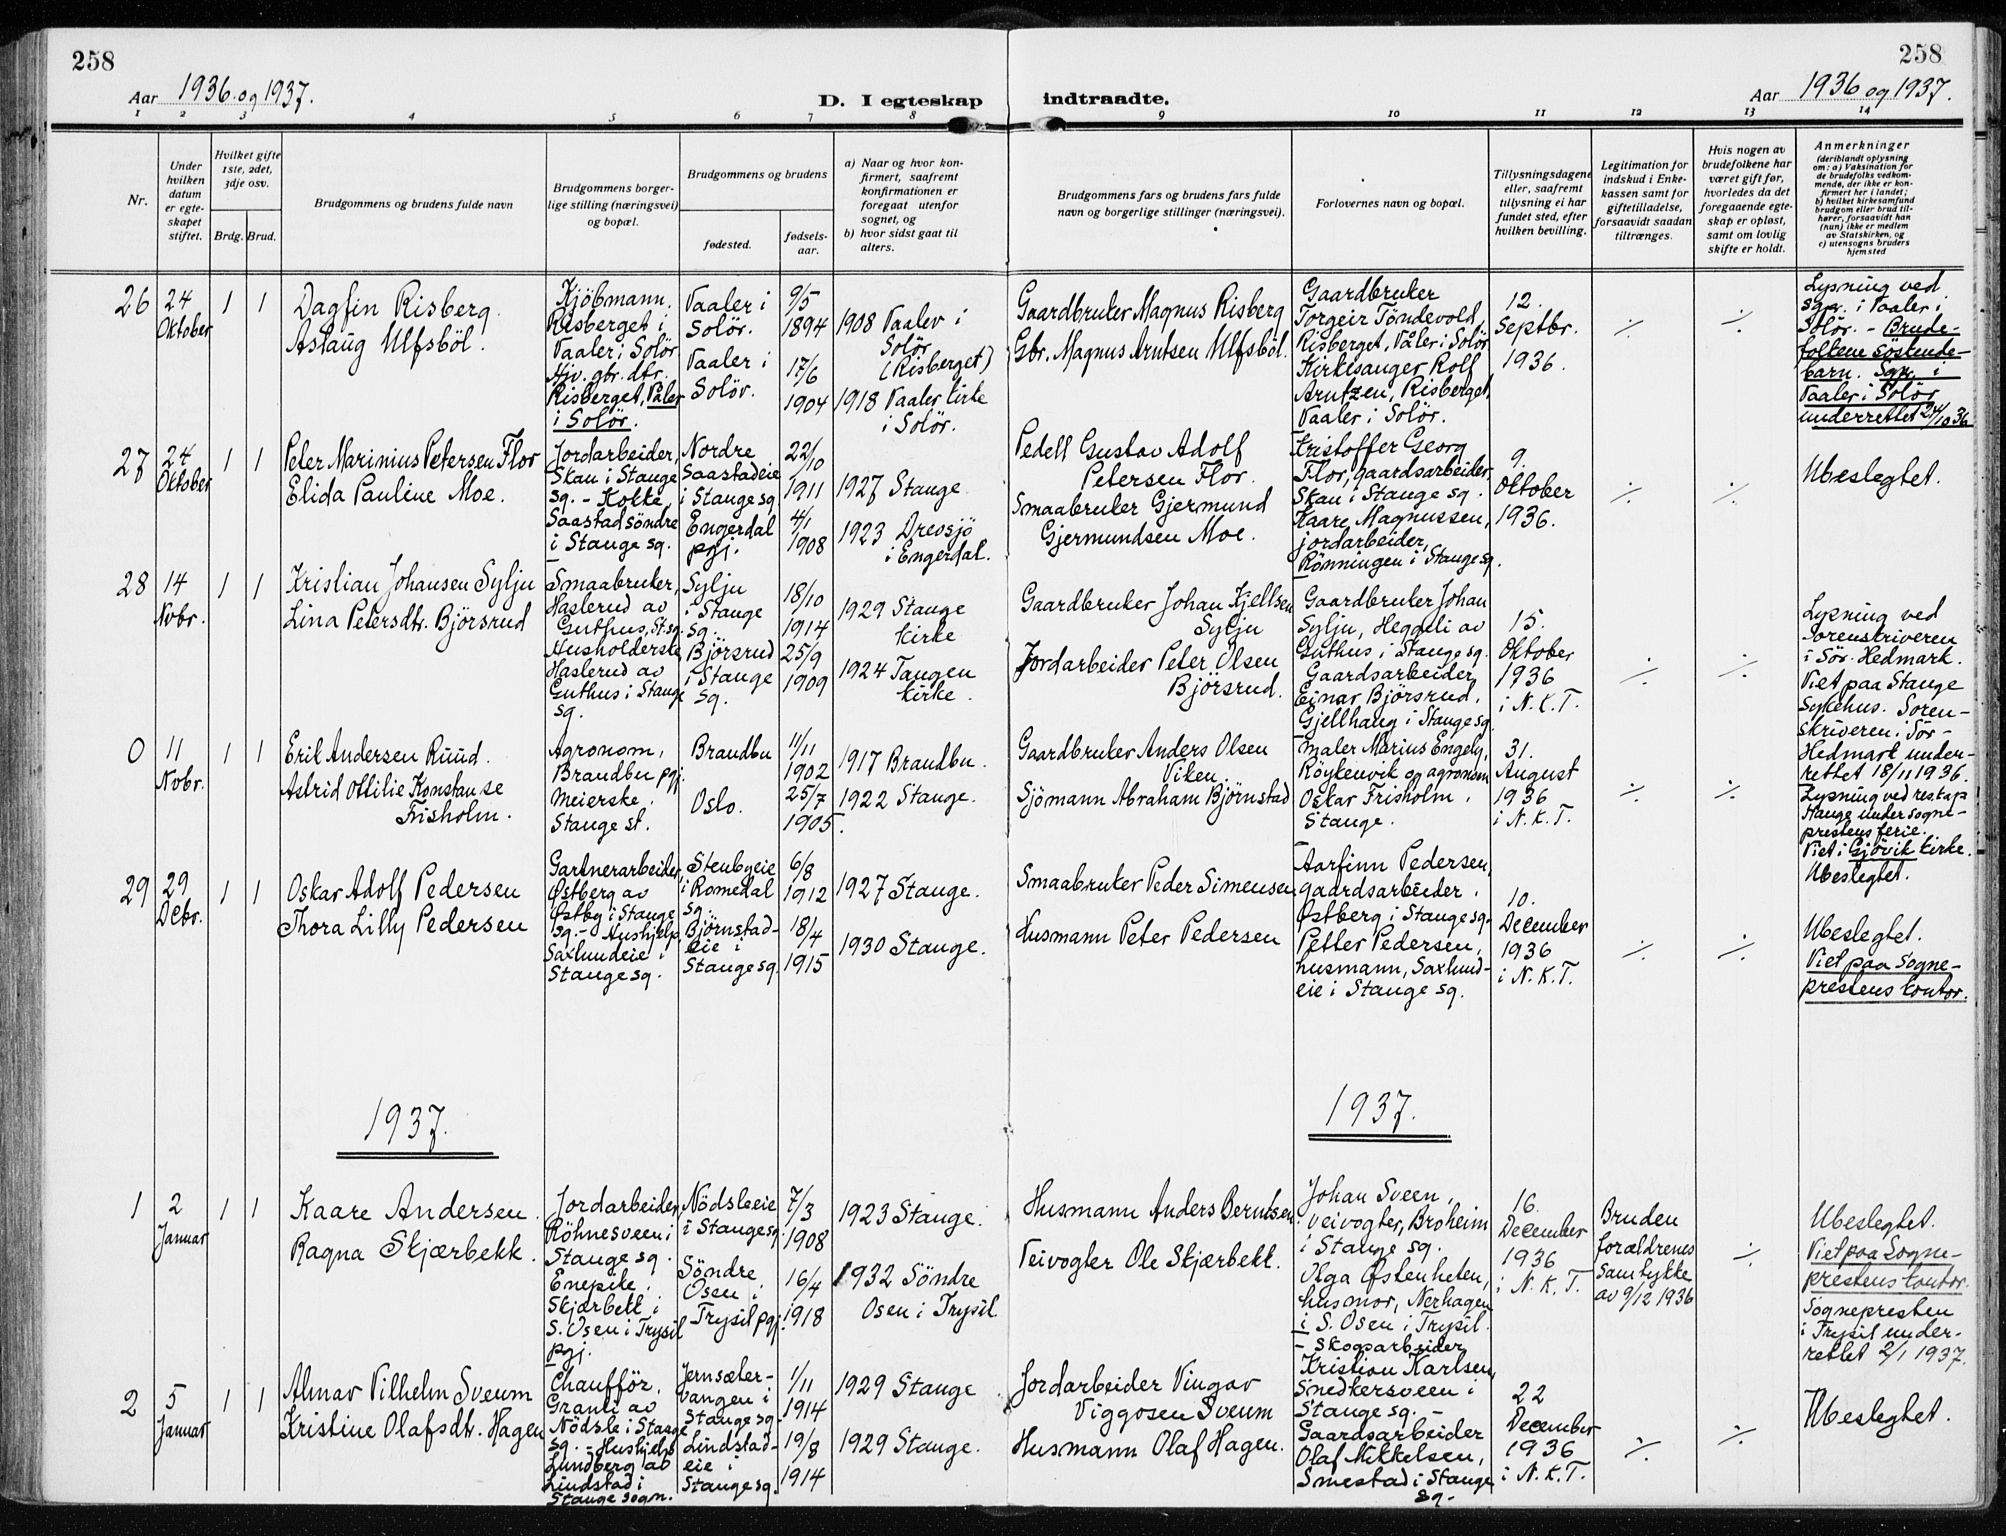 258
258
Aar 1936 og 1937.
D. I egteskap indtraadte.
Aar 1936 og 1937.
1 2 3 4 5 6 7 8 9 10 11 12 13 14
Nr.
Under hvilken datum er egteskapet stiftet.
Hvilket gifte 1ste, 2det, 3dje osv.
Brdg. Brud.
Brudgommens og brudens fulde navn
Brudgommens borgerlige stilling (næringsvei) og bopæl.
Brudgommens og brudens
fødested.
fødselsaar.
a) Naar og hvor konfirmert, saafremt konfirmationen er foregaat utenfor sognet, og
b) hvor sidst gaat til alters.
Brudgommens fars og brudens fars fulde navn og borgerlige stillinger (næringsvei).
Forlovernes navn og bopæl.
Tillysningsdagene eller, saafremt tillysning ei har fundet sted, efter hvilken bevilling.
Legitimation for indskud i Enkekassen samt for giftetilladelse, forsaavidt saadan tiltrænges.
Hvis nogen av brudefolkene har været gift før, hvorledes da det foregaaende egteskap er opløst, samt om lovlig skifte er holdt.
Anmerkninger
(deriblandt oplysning om: a) Vaksination for de brudefolks vedkommende, der ikke er konfirmert her i landet; b) hvilket kirkesamfund brudgom eller brud tilhører, forsaavidt han (hun) ikke er medlem av Statskirken, og c) utensogns bruders hjemsted
26
24
Oktober
1 1
Dagfin Risberg.
Aslaug Ulfsböl.
Kjöbmann,
Risberget i
Vaaler i Solör
Hjv. gbr. dtr.
Risberget, Våler
i Solör.
Vaaler i
Solör.
Vaaler i
Solör.
9/5
1894
17/6
1904
1908 Vaaler i
Solör
(Risberget)
1918 Vaaler kirke
i Solör.
Gaardbruker Magnus Risberg
Gbr. Magnus Arntsen Ulfsböl.
Gaardbruker
Torgeir Töndevold,
Risberget, Våler i Solör
Kirkesanger Rolf
Arntzen, Risberget,
Vaaler i Solör.
12.
Septbr.
1936.
⁒ ⁒
Lysning ved
sgpr. i Vaaler i
Solör. - Brude-
folkene söskende-
barn. Sgpr. i
Vaaler i Solör
underrettet 24/10 36
27
24
Oktober
1 1
Peter Marinius Petersen Flor
Elida Pauline Moe.
Jordarbeider,
Skau i Stange
sg. - Kokke,
Saastad söndre
i Stange sg.
Nordre
Saastadeie
i Stange sg
Engerdal
pgj.
22/10
1911
4/1
1908
1927 Stange.
1923 Drevsjö
i Engerdal.
Pedell Gustav Adolf
Petersen Flor.
Smaabruker Gjermund
Gjermundsen Moe.
Kristoffer Georg
Flor, gaardsarbeider,
Skau i Stange sg.
Kaare Magnussen,
jordarbeider,
Rönningen i Stange sg.
9.
Oktober
1936.
⁒ ⁒
Ubeslegtet.
28
14
Novbr.
1 1
Kristian Johansen Sylju
Lina Petersdtr. Björsrud
Smaabruker,
Haslerud av
Guthus, St. sg.
Husholderske
Haslerud av
Guthus i Stange
sg.
Sylju
i Stange
sg.
Björsrud
i Stange
sg.
18/10
1914
25/9
1909
1929 Stange
kirke
1924 Tangen
kirke.
Gaardbruker Johan Kjellsen
Sylju
Jordarbeider Peter Olsen
Björsrud.
Gaardbruker Johan
Sylju, Heggeli av
Guthus i Stange sg.
Gaardsarbeider
Einar Björsrud,
Gjellhaug i Stange sg.
15.
Oktober
1936
i N.K.T.
⁒ ⁒
Lysning ved
Sorenskriveren
i Sör-Hedmark.
Viet paa Stange
Sykehus. Soren-
skriveren i Sör-
Hedmark under-
rettet 18/11 1936.
0
11
Novbr.
1 1
Erik Andersen Ruud.
Astrid Ottilie Konstanse
Frisholm.
Agronom,
Brandbu pgj.
Meierske,
Stange st.
Brandbu
Oslo.
11/11
1902
25/7
1905.
1917 Brandbu.
1922 Stange.
Gaardbruker Anders Olsen
Viken
Sjömann Abraham Björnstad
Maler Marius Engely,
Röykenvik og agronom
Oskar Frisholm,
Stange.
31.
August
1936
i N.K.T.
⁒ ⁒
Lysning ved res. kap
Hauge under sogne-
prestens ferie.
Viet i Gjövik kirke.
Ubeslegtet.
29
29
Debr.
1 1
Oskar Adolf Pedersen
Thora Lilly Pedersen
Gartnerarbeider,
Østberg av
Østby i Stange
sg. - Hushjelp,
Saxlundeie i
Stange sg.
Stenbyeie
i Romedal
sg.
Björnstad-
eie i
Stange sg.
6/8
1912
18/4
1915
1927 Stange.
1930 Stange.
Smaabruker Peder Simensen
Husmann Peter Pedersen
Aarfinn Pedersen,
gaardsarbeider,
Østberg i Stange sg.
Petter Pedersen,
husmann, Saxlund-
eie i Stange sg.
10.
December
1936
i N.K.T.
⁒ ⁒
Ubeslegtet.
Viet paa Sogne-
prestens kontor.
1937.
1937.
1
2
Januar
1 1
Kaare Andersen.
Ragna Skjærbekk.
Jordarbeider,
Röhnesveen i
Stange sg.
Enepike,
Skjærbekk i
S. Osen i Trysil
pgj.
Nödsleeie
i Stange sg.
Söndre
Osen i
Trysil pgj.
7/3
1908
16/4
1918
1923 Stange.
1932 Söndre
Osen i Trysil
Husmann Anders Berntsen
Veivogter Ole Skjærbekk.
Johan Sveen,
veivogter, Broheim
i Stange sg.
Olga Østenheten,
husmor, Nerhagen
i S. Osen i Trysil.
16.
December
1936
i N.K.T.
Bruden
forældrenes
samtykke
av 9/12 1936
⁒
Ubeslegtet.
Viet paa Sogne-
prestens kontor.
Sognepresten
i Trysil under-
rettet 2/1 1937.
2
5
Januar
1 1
Almar Vilhelm Sveum
Kristine Olafsdtr. Hagen
Chaufför,
Granli av
Nödsle i Stange
sg. - Hushjelp
Lundberg av
Lindstad i
Stange sogn.
Jernsæter-
vangen i
Stange sg.
Lindstad-
eie i
Stange sg.
1/11
1914
19/8
1914
1929 Stange
1929 Stange.
Jordarbeider Vingar
Viggosen Sveum
Husmann Olaf Hagen.
- Skogsarbeider
Kristian Karlsen,
Snedkersveen i
Stange sg. -
Gaardsarbeider
Olaf Mikkelsen,
Smestad i Stange
sg.
22
December
1936
i N.K.T.
⁒ ⁒
Ubeslegtet.